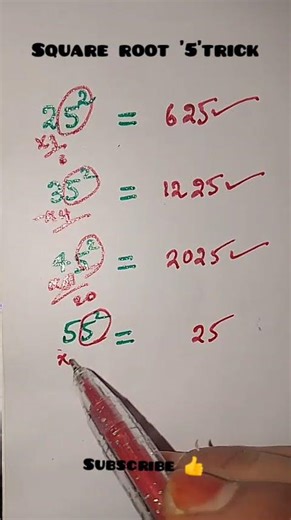 SQUARE ROOT '5' TRICK
25² = 625 ✓
6
35² = 1225 ✓
×4
45² = 2025 ✓
20
55² = 25
×
SUBSCRIBE 👍